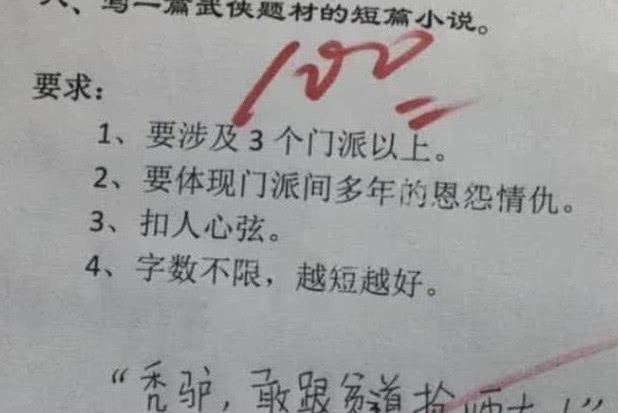 写一篇武侠题材的短篇小说。
100
要求：
1、要涉及 3 个门派以上。
2、要体现门派间多年的恩怨情仇。
3、扣人心弦。
4、字数不限，越短越好。
“秃驴，敢跟贫道抢师太！“